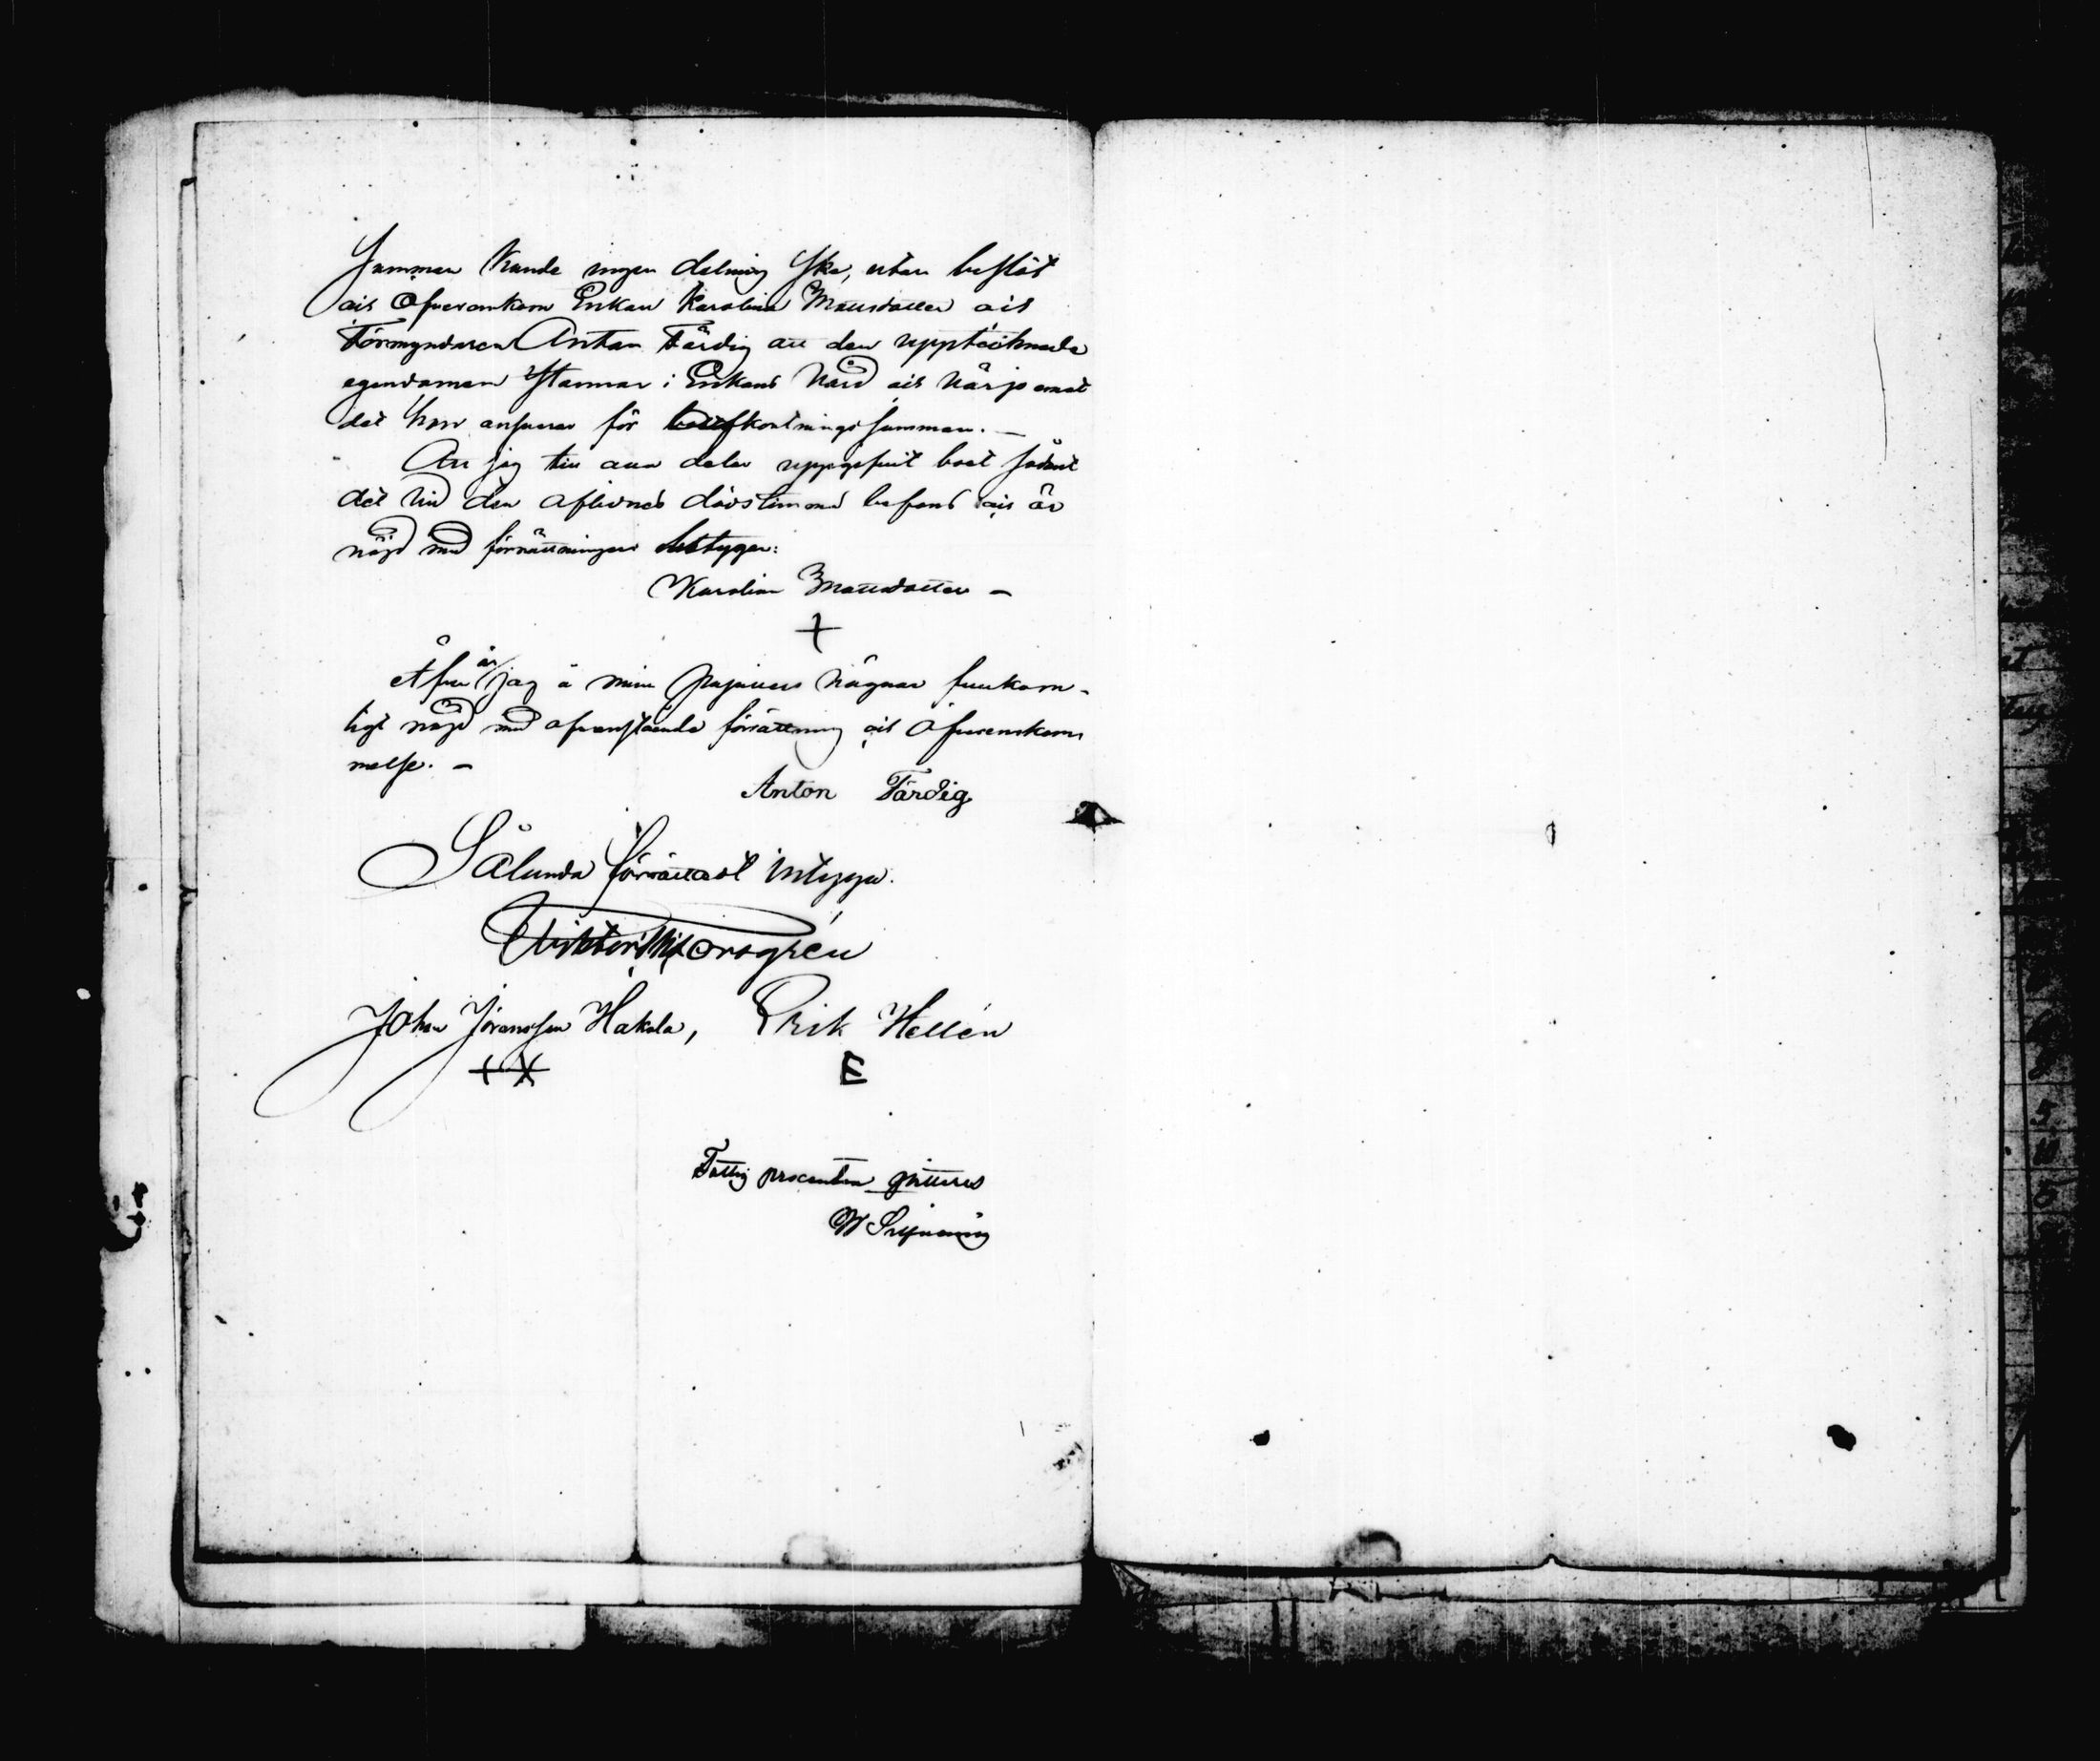 Summan kunde ingen delning ske, utan beslöt
och öfverenkom Enkan Karolina Mattsdotter och
Förmyndaren Anton Färdig att den upptecknade
egendomen stannar i Enkans vård och värjo emot
det hon ansvarar för summan. —
Att jag till alla delar uppgifvit boet sådant
det vid den aflidnes dödstimma befans och är
nöjd med förrättningen betygar:
Karolina Mattsdotter —
+
Äfven är jag å mine vägnar fullkom-
ligt nöjd med ofvanstående förrättning och öfverenskom
melse. —
Anton Färdig
Sålunda förrättadt intygga.
Johan Jöransson Hakola, Erik Hellén
E
Fattig procenten gulleres